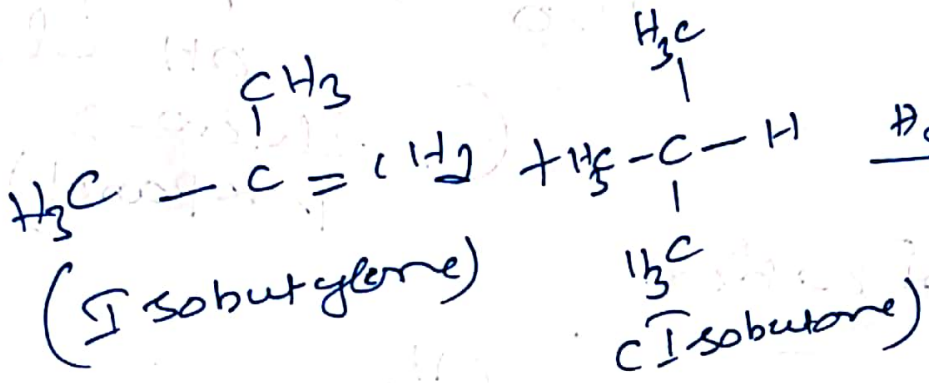 CH3 H3C
H3C - C = CH2 + H3C - C - H
H3C
(Isobutylene) (Isobutane)